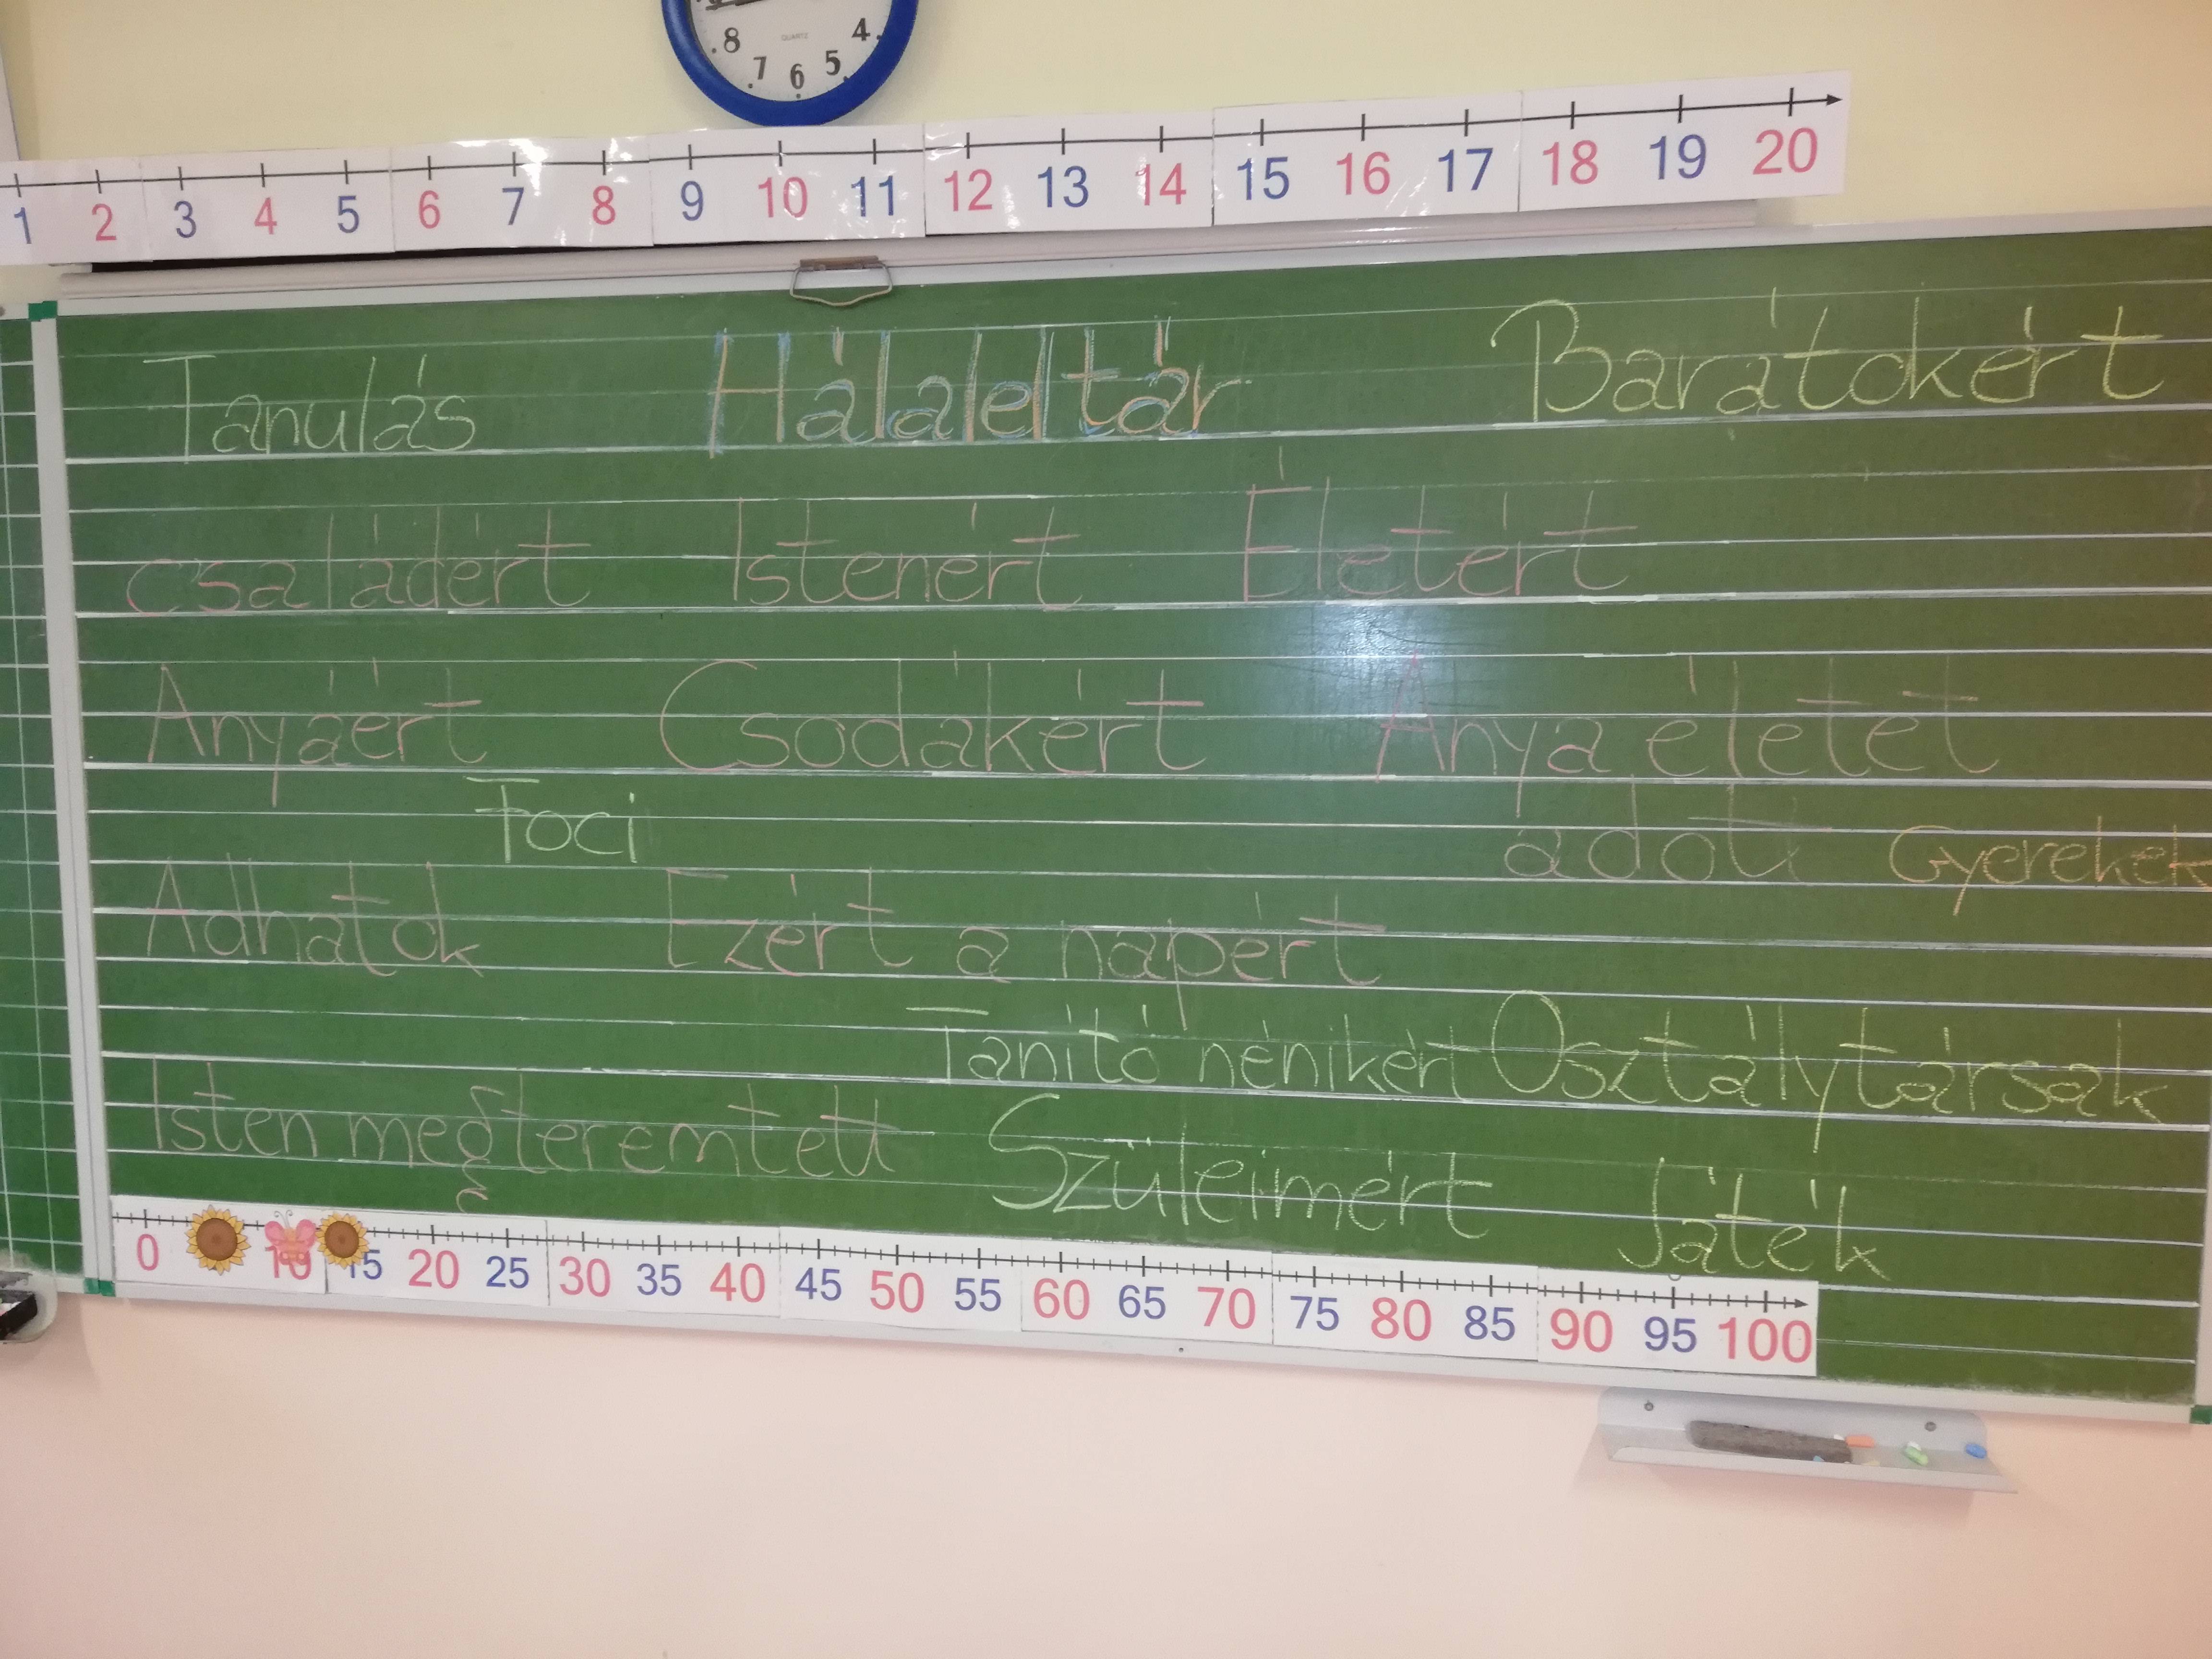 8 7 6 5 4
QUARTZ
1 2 3 4 5 6 7 8 9 10 11 12 13 14 15 16 17 18 19 20
Tanulás Hálaleltár Barátokért
családért Istenért Életért
Anyáért Csodákért Anya életet
Foci adott Gyerekek
Adhatok Ezért a napért
Tanító nénikért Osztálytársak
Isten megteremtett Szüleimért Játék
0 10 15 20 25 30 35 40 45 50 55 60 65 70 75 80 85 90 95 100